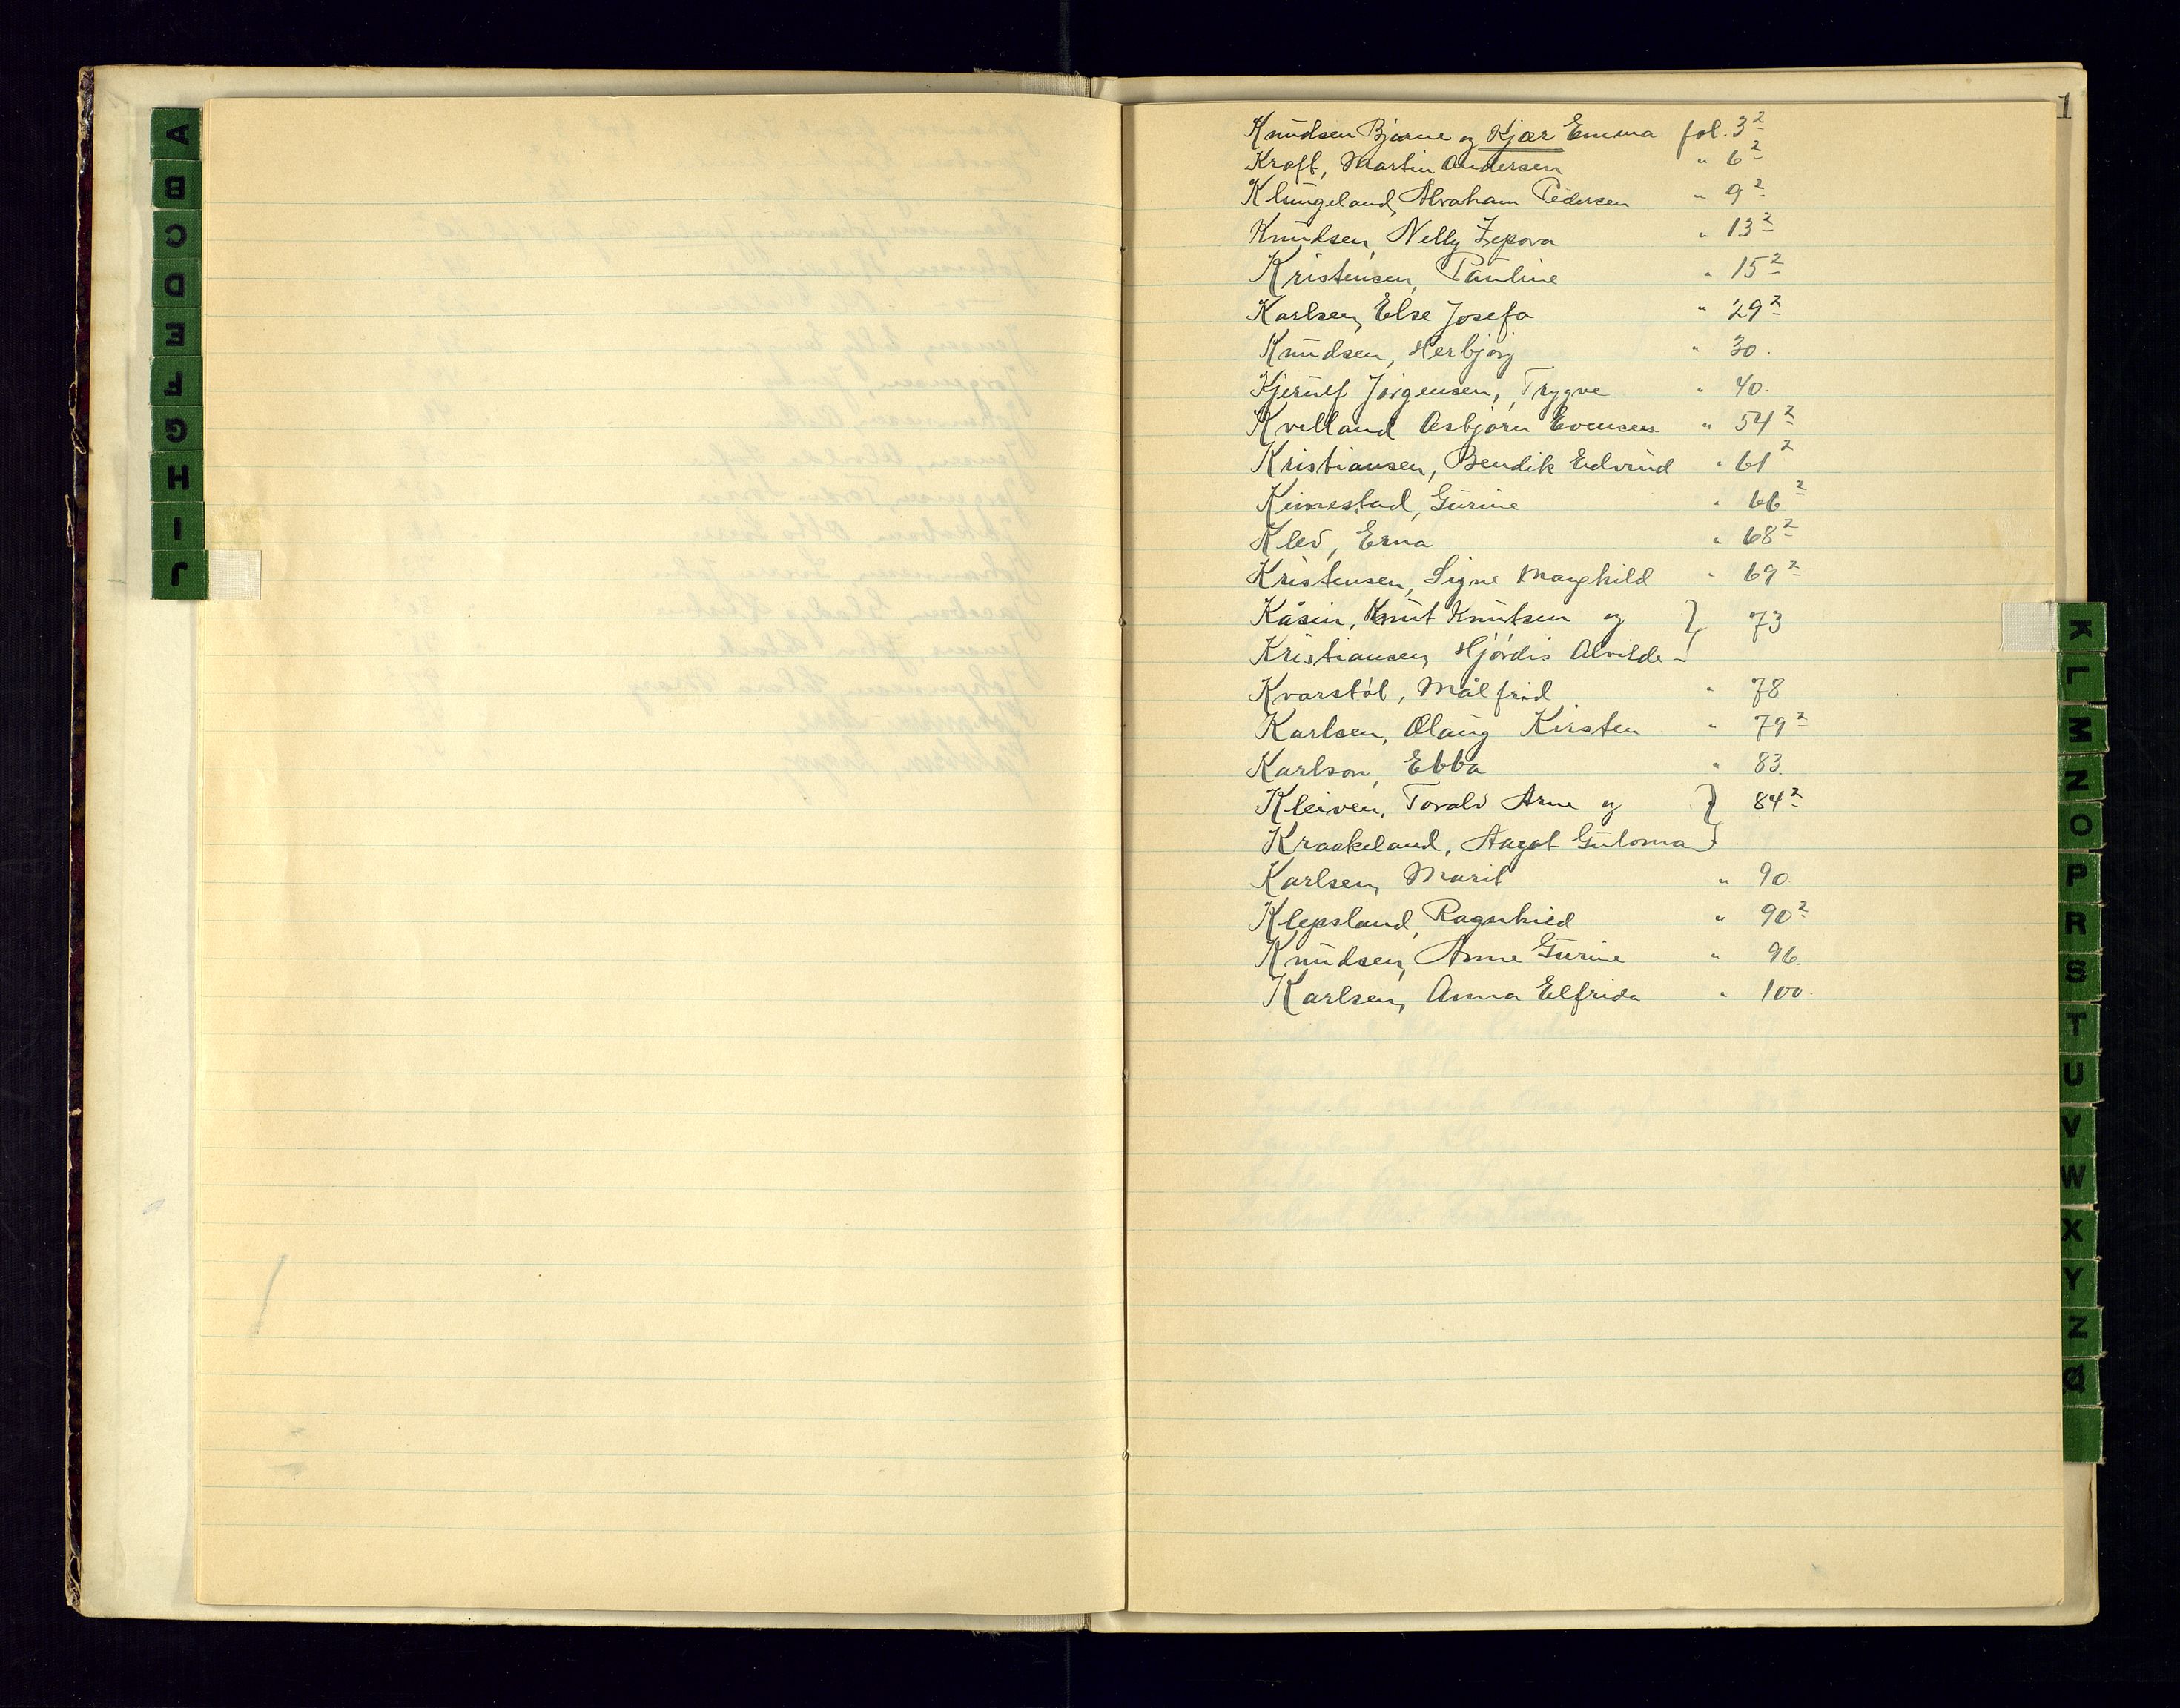 A
B
C
D
E
F
G
H
I
J
1
Knudsen Bjarne og Kjær Emma fol. 3²
Kraft, Martin Andersen " 6²
Klungeland, Abraham Pedersen " 9²
Knudsen, Nelly Zepora " 13²
Kristensen, Pauline " 15²
Karlsen, Else Josefa " 29²
Knudsen, Herbjørg " 30.
Kjerulf Jørgensen, Trygve " 40.
Kvelland Asbjørn Evensen " 54²
Kristiansen, Bendik Edvind " 61²
Kimestad, Gurine " 66²
Klev, Erna " 68²
Kristensen, Signe Marghild " 69²
Kåsin, Knut Knutsen og } 73
Kristiansen, Hjørdis Alvilde
Kvarstøl, Målfrid " 78
Karlsen, Olaug Kirsten " 79²
Karlson, Ebba " 83.
Kleiven, Torald Arne og } 84²
Kraakeland, Aagot Guloma
Karlsen, Marit " 90.
Klepsland, Ragnhild " 90²
Knudsen, Anne Gurine " 96.
Karlsen, Anna Elfrida " 100.
K
L
M
N
O
P
R
S
T
U
V
W
X
Y
Z
Ø